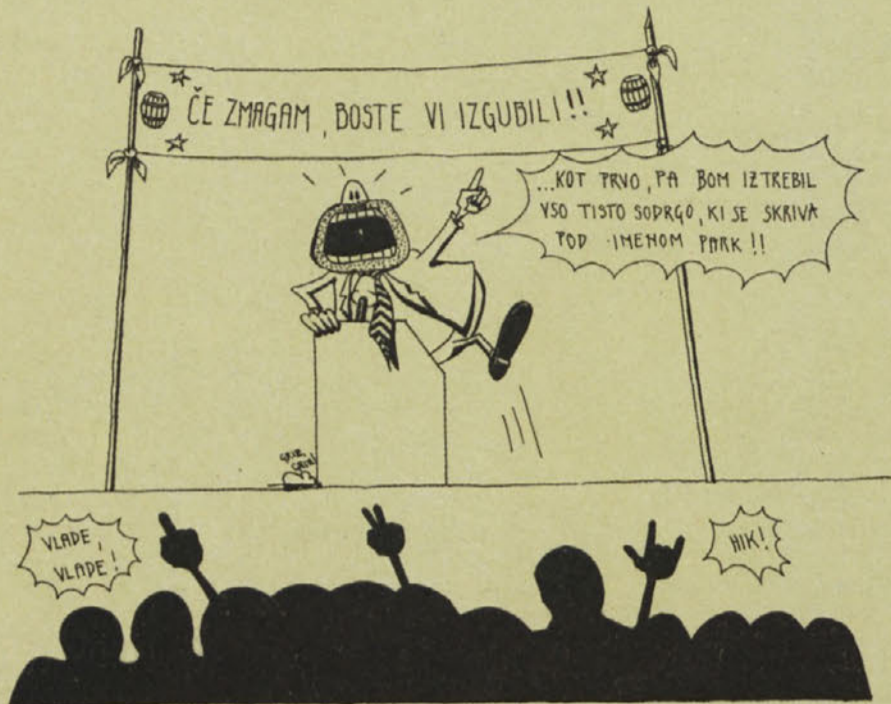 ČE ZMAGAM, BOSTE VI IZGUBILI!!
...KOT PRVO, PA BOM IZTREBIL
VSO TISTO SODRGO, KI SE SKRIVA
POD IMENOM PARK!!
VLADE,
VLADE!
HIK!